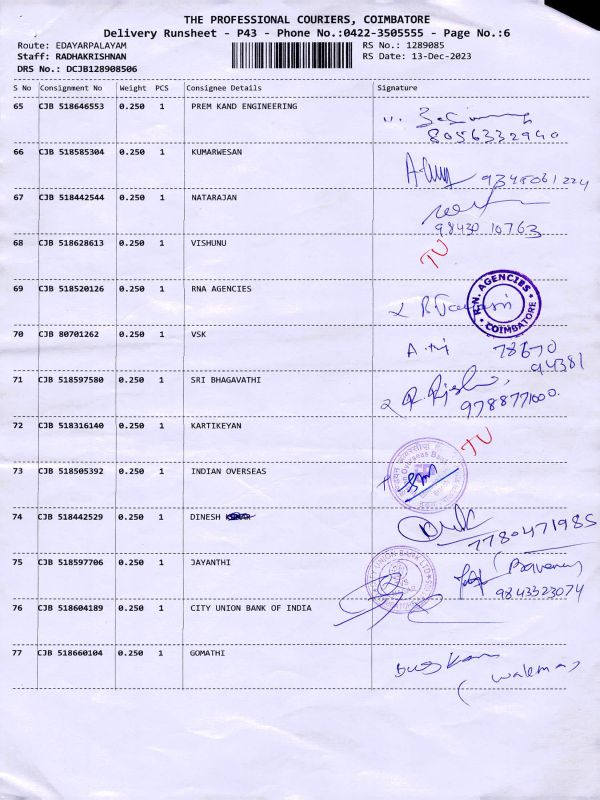 THE PROFESSIONAL COURIERS, COIMBATORE
Delivery Runsheet - P43 - Phone No.:0422-3505555 - Page No.:6
Route: EDAYARPALAYAM RS No.: 1289085
Staff: RADHAKRISHNAN RS Date: 13-Dec-2023
DRS No.: DCJB128908506
S No Consignment No Weight PCS Consignee Details Signature
65 CJB 518646553 0.250 1 PREM KAND ENGINEERING
8056332940
66 CJB 518585304 0.250 1 KUMARWESAN
9345061224
67 CJB 518442544 0.250 1 NATARAJAN
98430 10763
68 CJB 518628613 0.250 1 VISHUNU
TV
69 CJB 518520126 0.250 1 RNA AGENCIES
R.N. AGENCIES
COIMBATORE
70 CJB 80701262 0.250 1 VSK
78670
94381
71 CJB 518597580 0.250 1 SRI BHAGAVATHI
9788771000.
72 CJB 518316140 0.250 1 KARTIKEYAN TV
73 CJB 518505392 0.250 1 INDIAN OVERSEAS
Indian Overseas Bank
74 CJB 518442529 0.250 1 DINESH
7780471985
75 CJB 518597706 0.250 1 JAYANTHI
CITY UNION BANK LTD
9843323074
76 CJB 518604189 0.250 1 CITY UNION BANK OF INDIA
77 CJB 518660104 0.250 1 GOMATHI